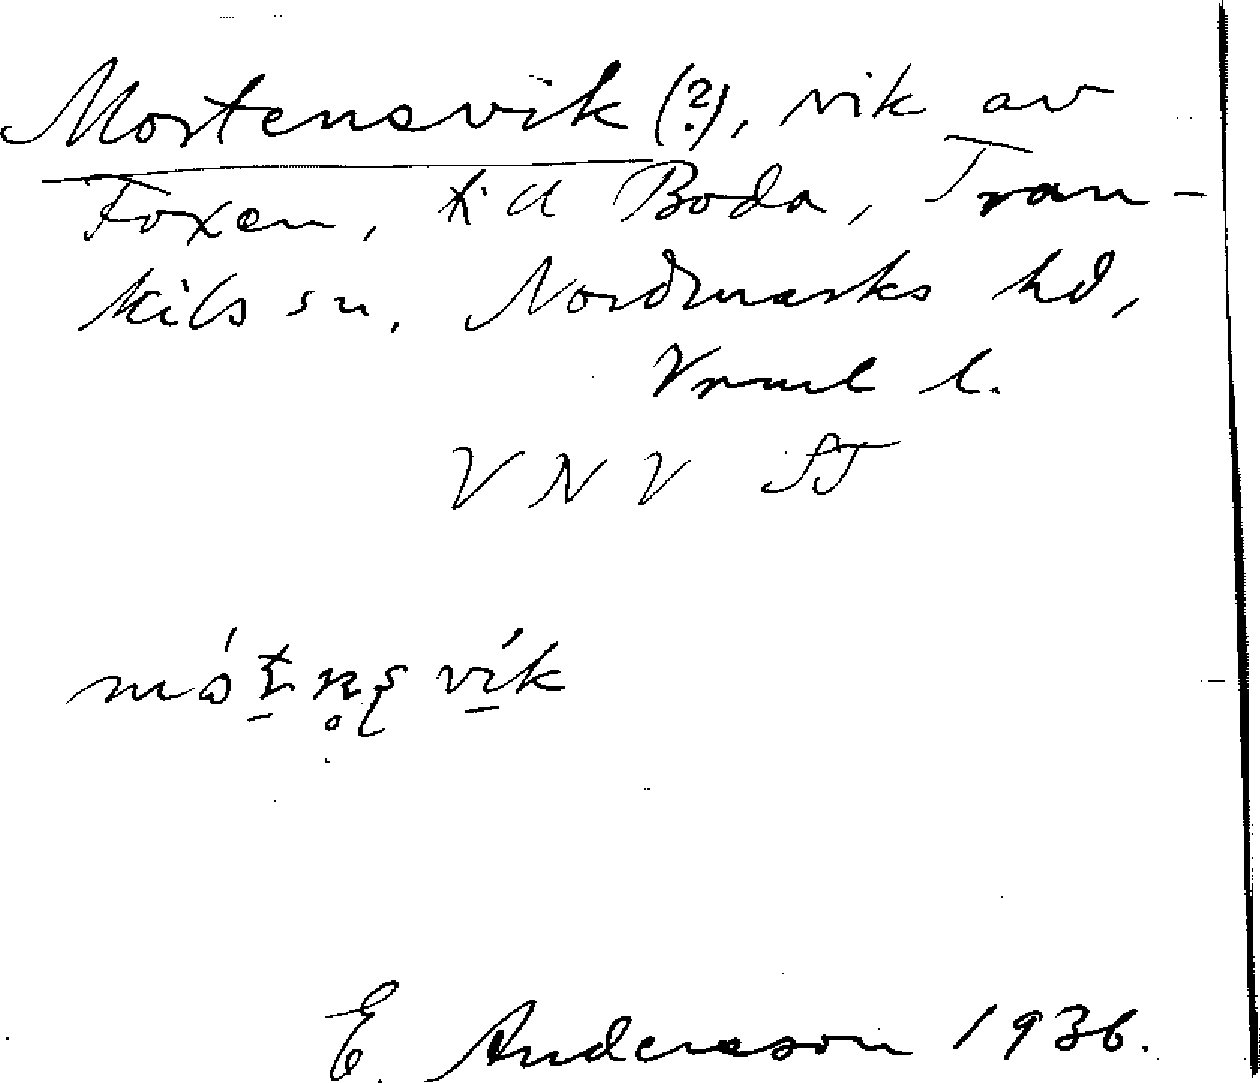 Mortensvik (?), vik av
Foxen, till Boda, Tran-
kils sn, Nordmarks hd,
Vrml l.
V N V ST
vík
E. Andersson 1936.